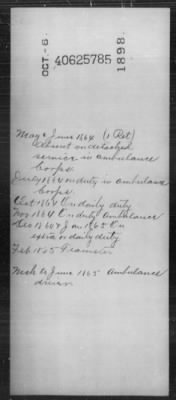 OCT.-6. 40625785 1898.
May & June 1864 (1 Ret)
Absent on detached
service in ambulance
Corps.
July 1864 on duty in ambulance
Corps.
Oct 1864 On daily duty
Nov 1864 On duty Ambulance
Dec 1864 & Jan 1865 On
extra or daily duty
Feb 1865 Teamster
Mch & June 1865 Ambulance
driver